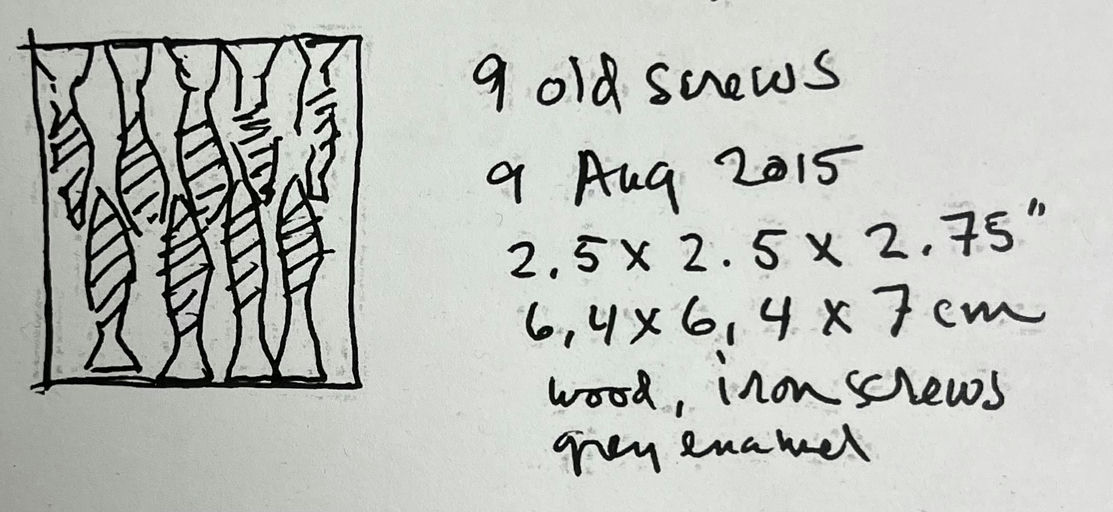 9 old screws
9 Aug 2015
2.5 x 2.5 x 2.75"
6,4 x 6,4 x 7 cm
wood, iron screws
grey enamel